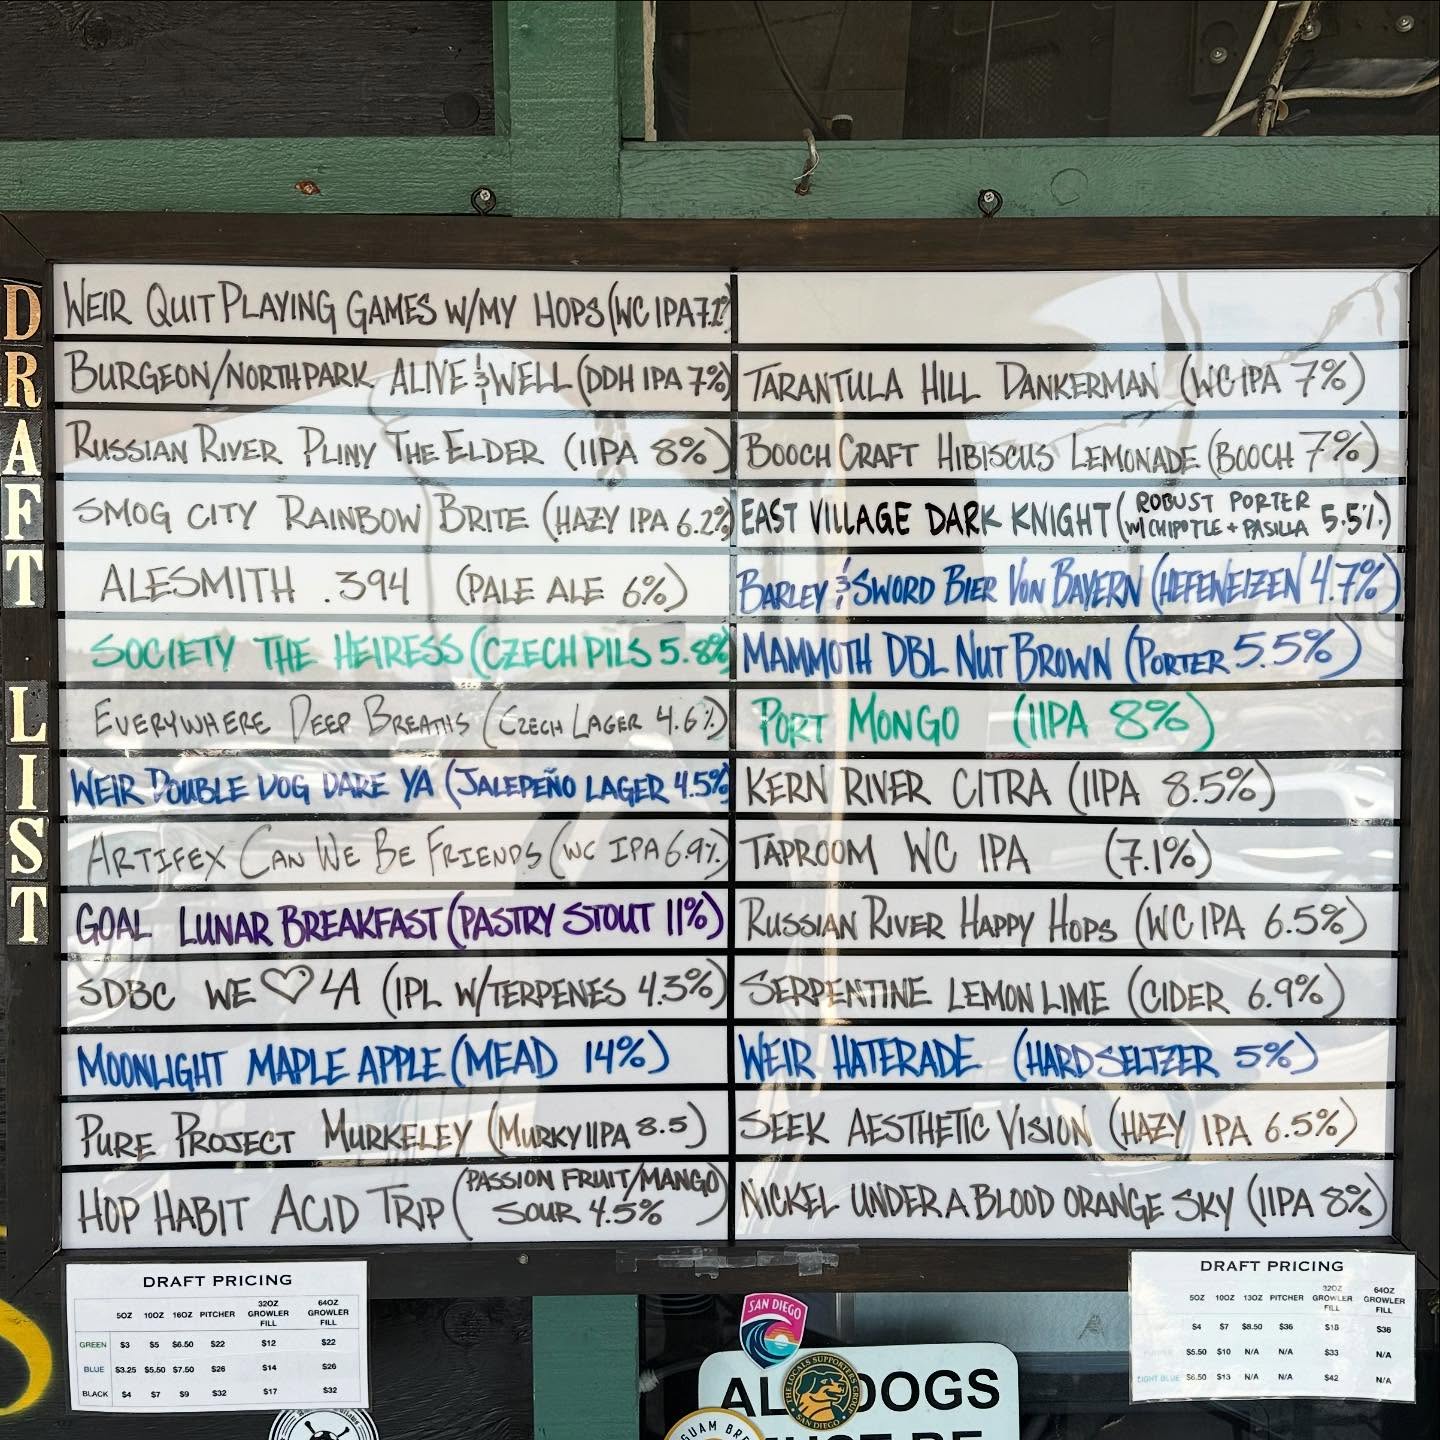 DRAFT LIST
WEIR QUIT PLAYING GAMES W/MY HOPS (WC IPA 7.1%
BURGEON/NORTH PARK ALIVE & WELL (DDH IPA 7%)
RUSSIAN RIVER PLINY THE ELDER (IIPA 8%)
SMOG CITY RAINBOW BRITE (HAZY IPA 6.2%)
ALESMITH .394 (PALE ALE 6%)
SOCIETY THE HEIRESS (CZECH PILS 5.8%
EVERYWHERE DEEP BREATHS (CZECH LAGER 4.6%)
WEIR DOUBLE DOG DARE YA (JALEPEÑO LAGER 4.5%
ARTIFEX CAN WE BE FRIENDS (WC IPA 6.9%)
GOAL LUNAR BREAKFAST (PASTRY STOUT 11%)
SDBC WE ♡ LA (IPL W/TERPENES 4.3%)
MOONLIGHT MAPLE APPLE (MEAD 14%)
PURE PROJECT MURKELEY (MURKY IIPA 8.5)
HOP HABIT ACID TRIP (PASSION FRUIT/MANGO
SOUR 4.5%)
TARANTULA HILL DANKERMAN (WC IPA 7%)
BOOCH CRAFT HIBISCUS LEMONADE (BOOCH 7%)
EAST VILLAGE DARK KNIGHT (ROBUST PORTER
W/ CHIPOTLE + PASILLA 5.5%)
BARLEY & SWORD BIER VON BAYERN (HEFEWEIZEN 4.7%)
MAMMOTH DBL NUT BROWN (PORTER 5.5%)
PORT MONGO (IIPA 8%)
KERN RIVER CITRA (IIPA 8.5%)
TAPROOM WC IPA (7.1%)
RUSSIAN RIVER HAPPY HOPS (WC IPA 6.5%)
SERPENTINE LEMON LIME (CIDER 6.9%)
WEIR HATERADE (HARD SELTZER 5%)
SEEK AESTHETIC VISION (HAZY IPA 6.5%)
NICKEL UNDER A BLOOD ORANGE SKY (IIPA 8%)
DRAFT PRICING
5OZ 10OZ 16OZ PITCHER 32OZ GROWLER FILL 64OZ GROWLER FILL
GREEN $3 $5 $6.50 $22 $12 $22
BLUE $3.25 $5.50 $7.50 $26 $14 $26
BLACK $4 $7 $9 $32 $17 $32
DRAFT PRICING
5OZ 10OZ 13OZ PITCHER 32OZ GROWLER FILL 64OZ GROWLER FILL
$4 $7 $8.50 $36 $18 $36
$5.50 $10 N/A N/A $33 N/A
LIGHT BLUE $6.50 $13 N/A N/A $42 N/A
SAN DIEGO
THE LOCALS SUPPORTERS GROUP
SAN DIEGO
DOGS